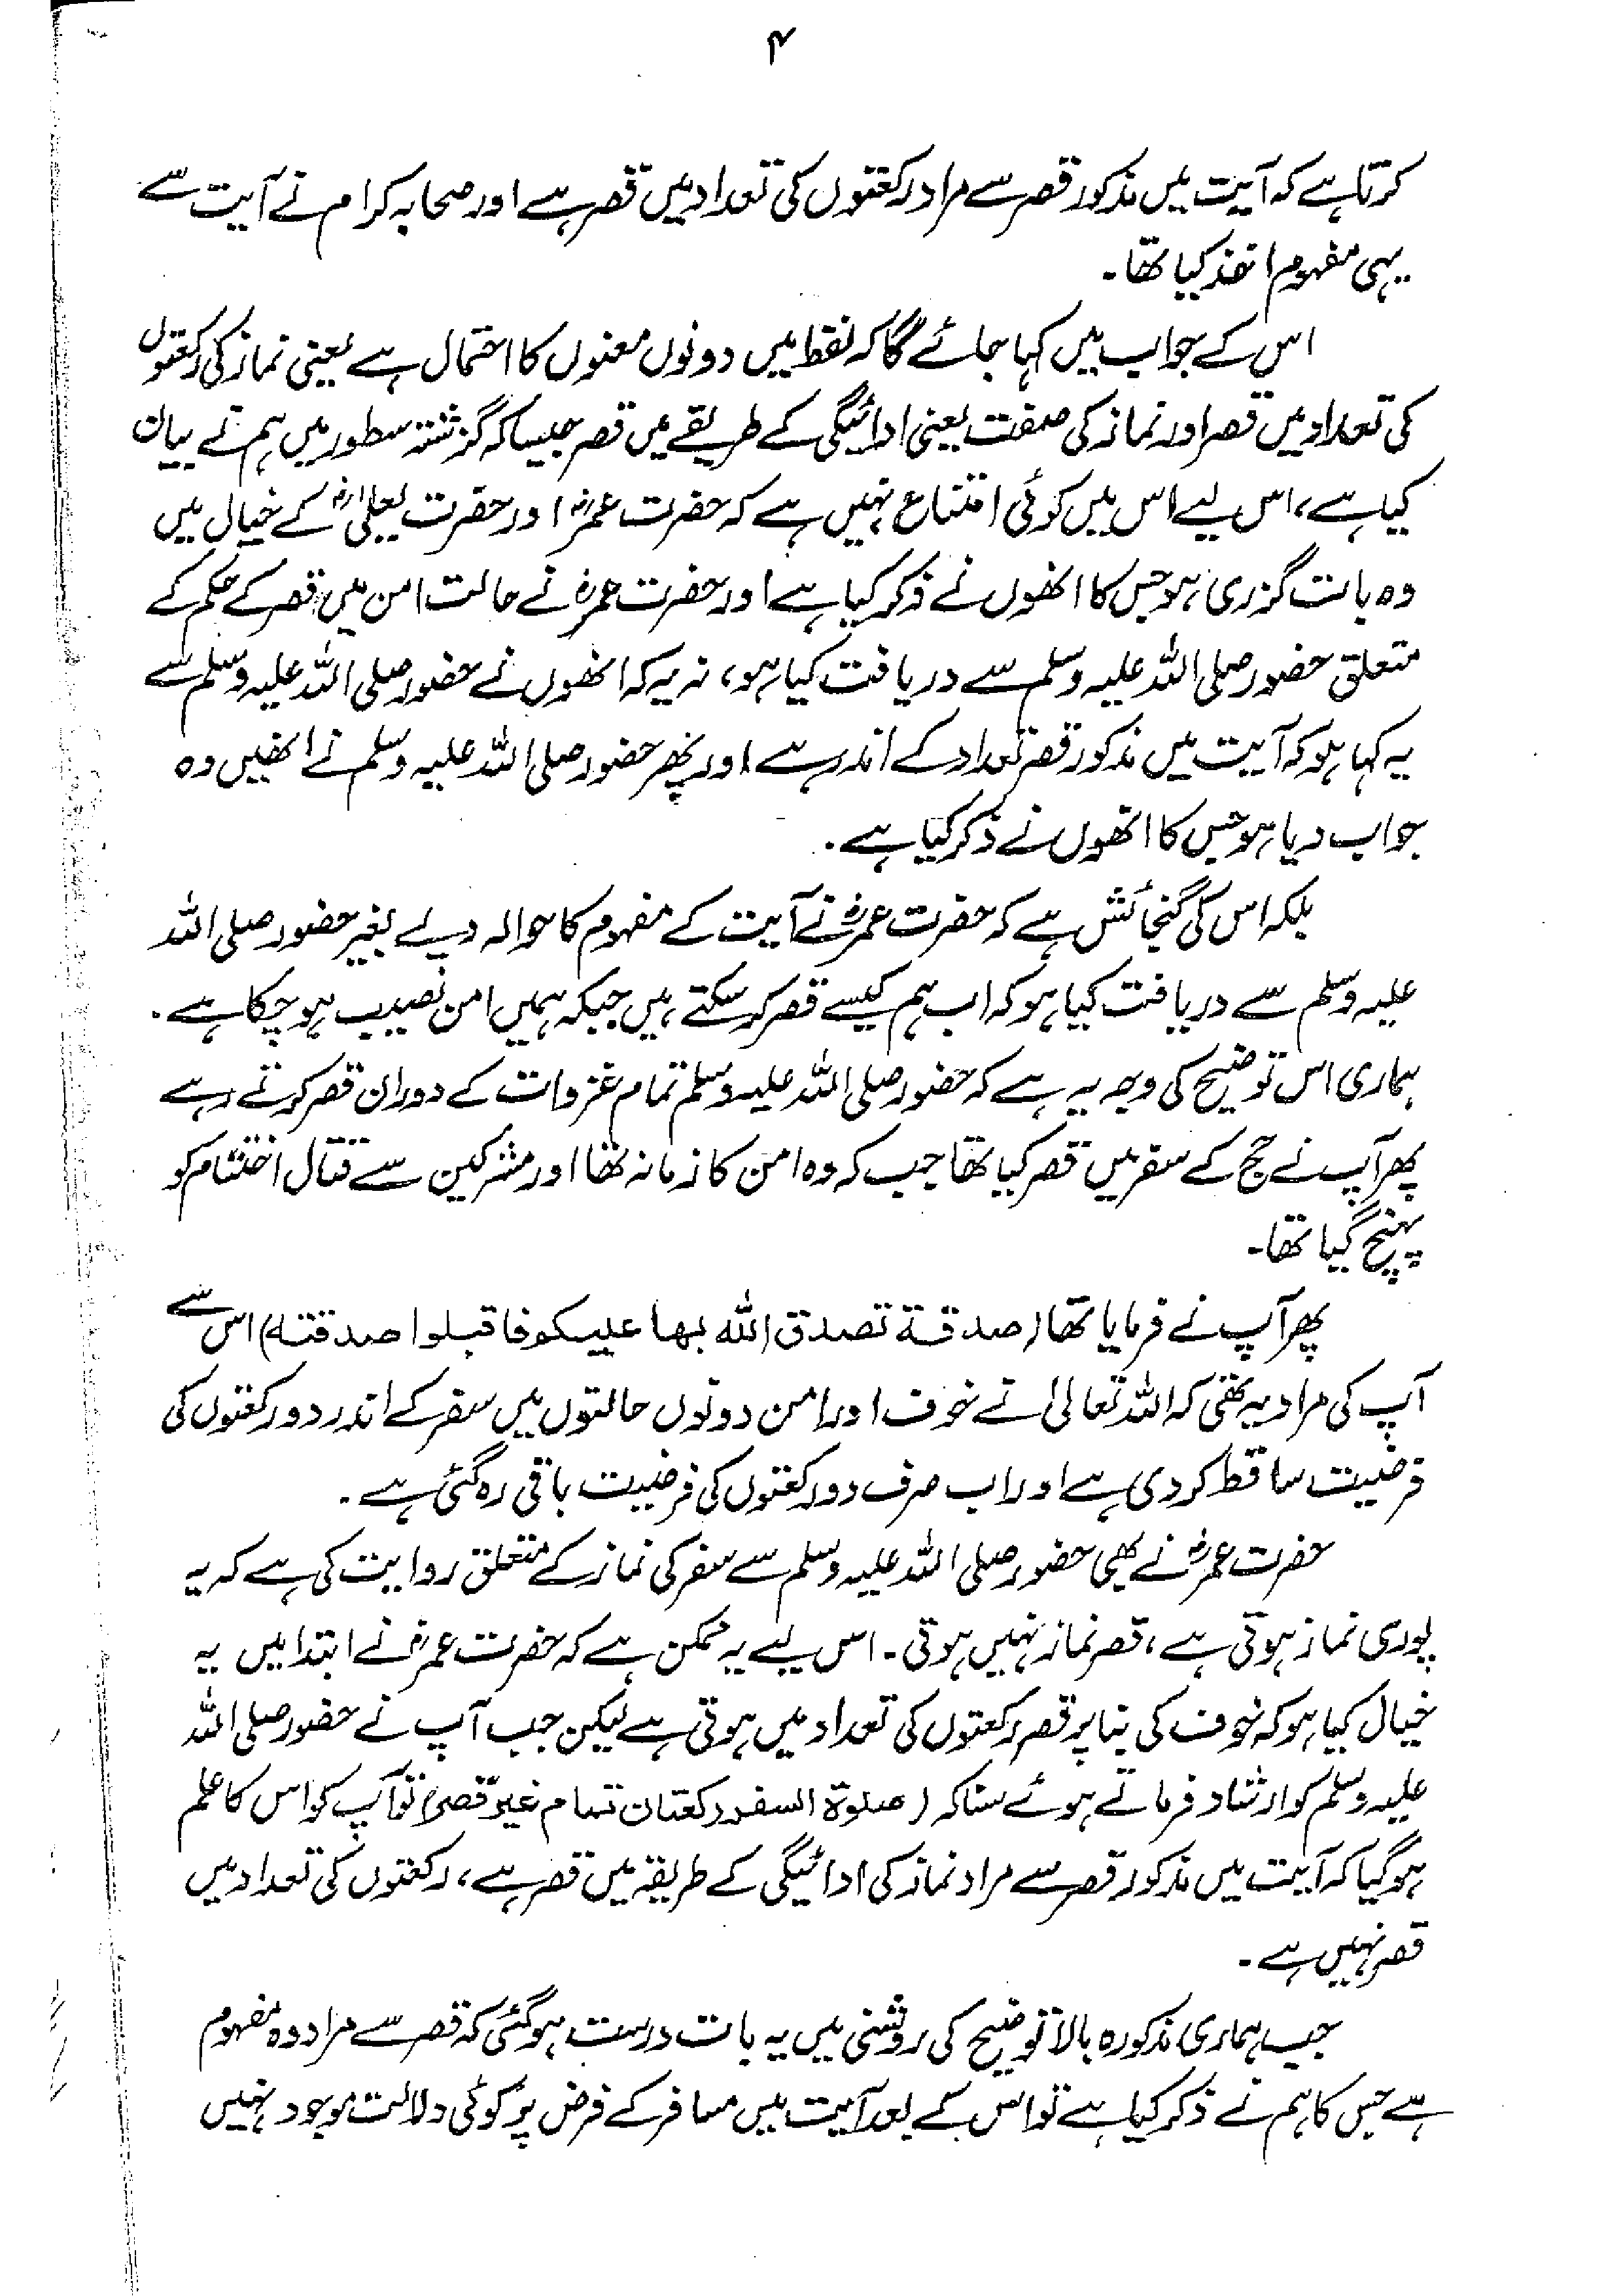 ۴
کرتا ہے کہ آیت میں مذکور قصر سے مراد رکعتوں کی تعداد میں قصر ہے اور صحابہ کرام نے آیت سے
یہی مفہوم اخذ کیا تھا۔
اس کے جواب میں کہا جائے گا کہ لفظ میں دونوں معنوں کا احتمال ہے یعنی نماز کی رکعتوں
کی تعداد میں قصر اور نماز کی صفت یعنی ادائیگی کے طریقے میں قصر جیسا کہ گزشتہ سطور میں ہم نے بیان
کیا ہے، اس لیے اس میں کوئی امتناع نہیں ہے کہ حضرت عمرؓ اور حضرت یعلیٰؓ کے خیال میں
وہ بات گزری ہو جس کا انھوں نے ذکر کیا ہے اور حضرت عمرؓ نے حالت امن میں قصر کے حکم کے
متعلق حضور صلی اللہ علیہ وسلم سے دریافت کیا ہو، نہ یہ کہ انھوں نے حضور صلی اللہ علیہ وسلم سے
یہ کہا ہو کہ آیت میں مذکور قصر تعداد کے اندر ہے اور پھر حضور صلی اللہ علیہ وسلم نے انھیں وہ
جواب دیا ہو جس کا انھوں نے ذکر کیا ہے۔
بلکہ اس کی گنجائش ہے کہ حضرت عمرؓ نے آیت کے مفہوم کا حوالہ دیے بغیر حضور صلی اللہ
علیہ وسلم سے دریافت کیا ہو کہ اب ہم کیسے قصر کر سکتے ہیں جبکہ ہمیں امن نصیب ہو چکا ہے۔
ہماری اس توضیح کی وجہ یہ ہے کہ حضور صلی اللہ علیہ وسلم تمام غزوات کے دوران قصر کرتے رہے
پھر آپ نے حج کے سفر میں قصر کیا تھا جب کہ وہ امن کا زمانہ تھا اور مشرکین سے قتال اختتام کو
پہنچ گیا تھا۔
پھر آپ نے فرمایا تھا (صدقۃ تصدق اللہ بھا علیکم فاقبلوا صدقتہ) اس سے
آپ کی مراد یہ تھی کہ اللہ تعالیٰ نے خوف اور امن دونوں حالتوں میں سفر کے اندر دو رکعتوں کی
فرضیت ساقط کر دی ہے اور اب صرف دو رکعتوں کی فرضیت باقی رہ گئی ہے۔
حضرت عمرؓ نے بھی حضور صلی اللہ علیہ وسلم سے سفر کی نماز کے متعلق روایت کی ہے کہ یہ
پوری نماز ہوتی ہے، قصر نماز نہیں ہوتی۔ اس لیے یہ ممکن ہے کہ حضرت عمرؓ نے ابتدا میں یہ
خیال کیا ہو کہ خوف کی بنا پر قصر رکعتوں کی تعداد میں ہوتی ہے لیکن جب آپ نے حضور صلی اللہ
علیہ وسلم کو ارشاد فرماتے ہوئے سنا کہ (صلوۃ السفر رکعتان تمام غیر قصر) تو آپ کو اس کا علم
ہو گیا کہ آیت میں مذکور قصر سے مراد نماز کی ادائیگی کے طریقہ میں قصر ہے، رکعتوں کی تعداد میں
قصر نہیں ہے۔
جب ہماری مذکورہ بالا توضیح کی روشنی میں یہ بات درست ہو گئی کہ قصر سے مراد وہ مفہوم
ہے جس کا ہم نے ذکر کیا ہے تو اس کے بعد آیت میں مسافر کے فرض پر کوئی دلالت موجود نہیں